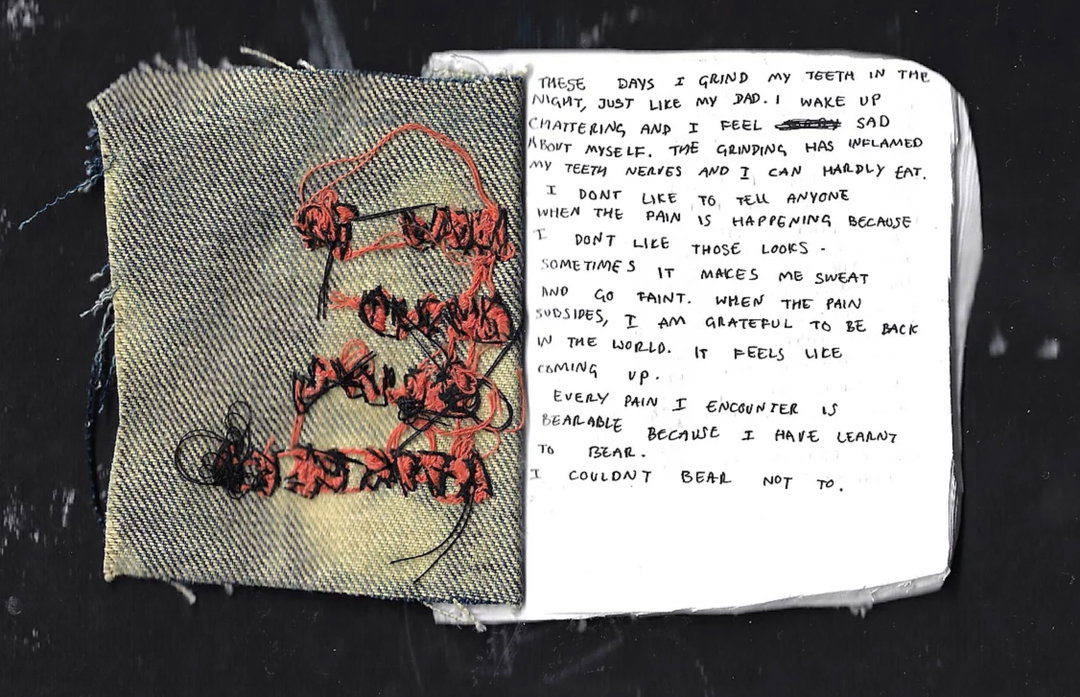 THESE DAYS I GRIND MY TEETH IN THE
NIGHT, JUST LIKE MY DAD. I WAKE UP
CHATTERING AND I FEEL SAD
ABOUT MYSELF. THE GRINDING HAS INFLAMED
MY TEETH NERVES AND I CAN HARDLY EAT.
I DONT LIKE TO TELL ANYONE
WHEN THE PAIN IS HAPPENING BECAUSE
I DONT LIKE THOSE LOOKS -
SOMETIMES IT MAKES ME SWEAT
AND GO FAINT. WHEN THE PAIN
SUBSIDES, I AM GRATEFUL TO BE BACK
IN THE WORLD. IT FEELS LIKE
COMING UP.
EVERY PAIN I ENCOUNTER IS
BEARABLE BECAUSE I HAVE LEARNT
TO BEAR.
I COULDNT BEAR NOT TO.